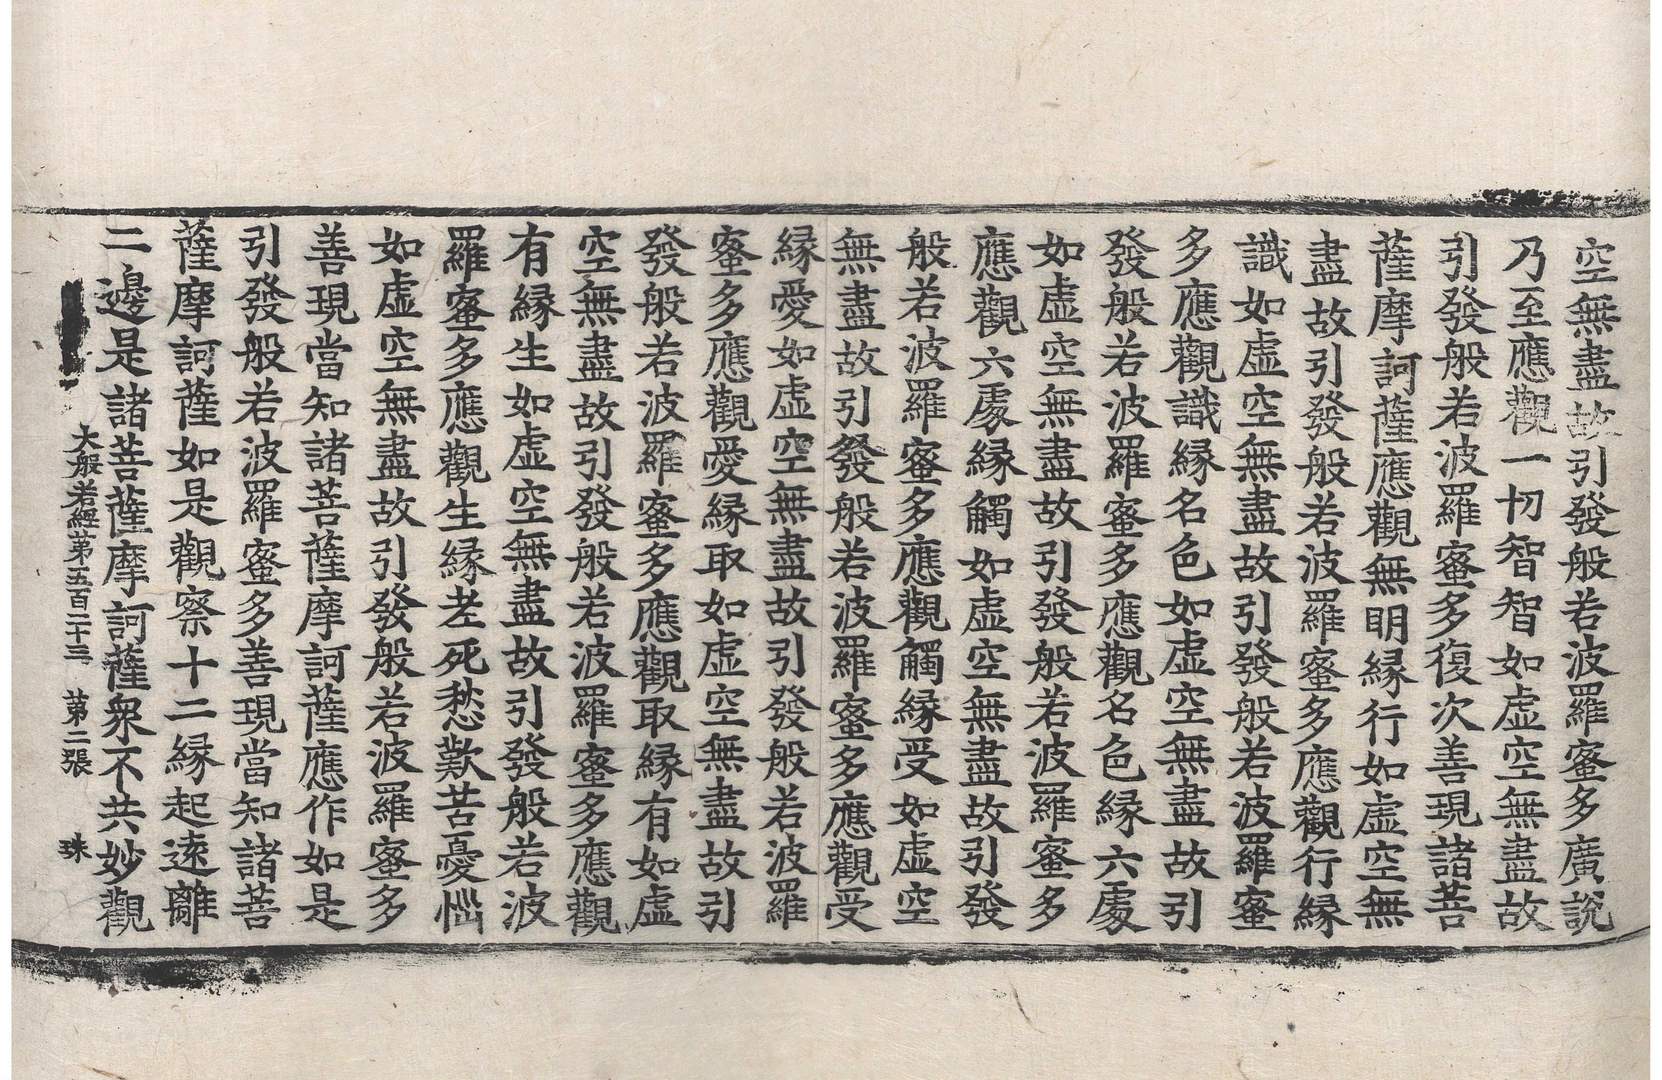 空無盡故引發般若波羅蜜多廣說
乃至應觀一切智智如虛空無盡故
引發般若波羅蜜多復次善現諸菩
薩摩訶薩應觀無明緣行如虛空無
盡故引發般若波羅蜜多應觀行緣
識如虛空無盡故引發般若波羅蜜
多應觀識緣名色如虛空無盡故引
發般若波羅蜜多應觀名色緣六處
如虛空無盡故引發般若波羅蜜多
應觀六處緣觸如虛空無盡故引發
般若波羅蜜多應觀觸緣受如虛空
無盡故引發般若波羅蜜多應觀受
緣愛如虛空無盡故引發般若波羅
蜜多應觀愛緣取如虛空無盡故引
發般若波羅蜜多應觀取緣有如虛
空無盡故引發般若波羅蜜多應觀
有緣生如虛空無盡故引發般若波
羅蜜多應觀生緣老死愁歎苦憂惱
如虛空無盡故引發般若波羅蜜多
善現當知諸菩薩摩訶薩應作如是
引發般若波羅蜜多善現當知諸菩
薩摩訶薩如是觀察十二緣起遠離
二邊是諸菩薩摩訶薩衆不共妙觀
大般若經第五百二十三 第二張 珠